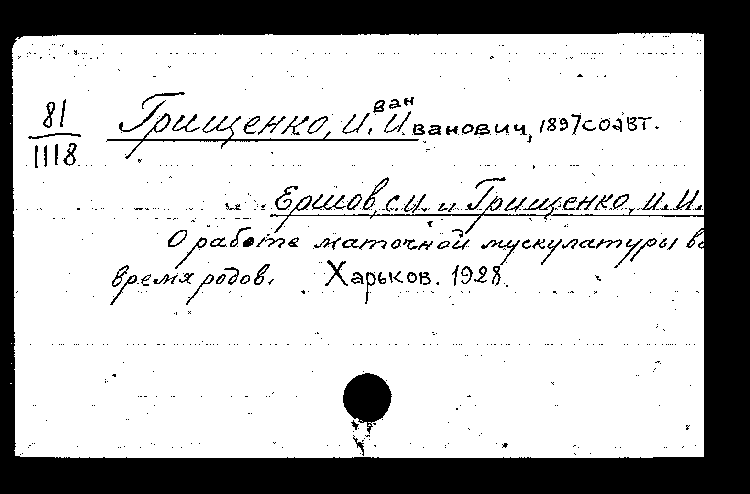 81
1118
Грищенко, И.ван Иванович, 1897 соавт.
Ершов, С.И. и Грищенко, И.И.
О работе маточной мускулатуры во
время родов. Харьков. 1928.